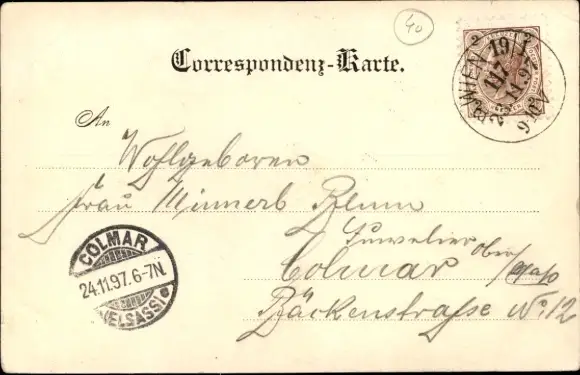 40
Correspondenz-Karte.
WIEN 19/1
117
11.97
An
Wohlgeboren
Frau Minnerl Blum
Juwelier
Colmar Ober/Elsaß
Bäckenstraße No. 12
COLMAR
24.11.97. 6-7N.
(ELSASS)